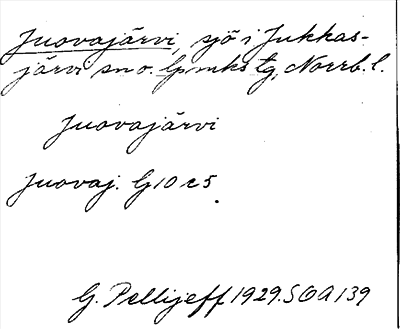 Juovajärvi, sjö i Jukkas-
järvi sn o. lpmks tg, Norrb. l.
Juovajärvi
Juovaj. G10 c5.
G. Pellijeff 1929. SOA 139